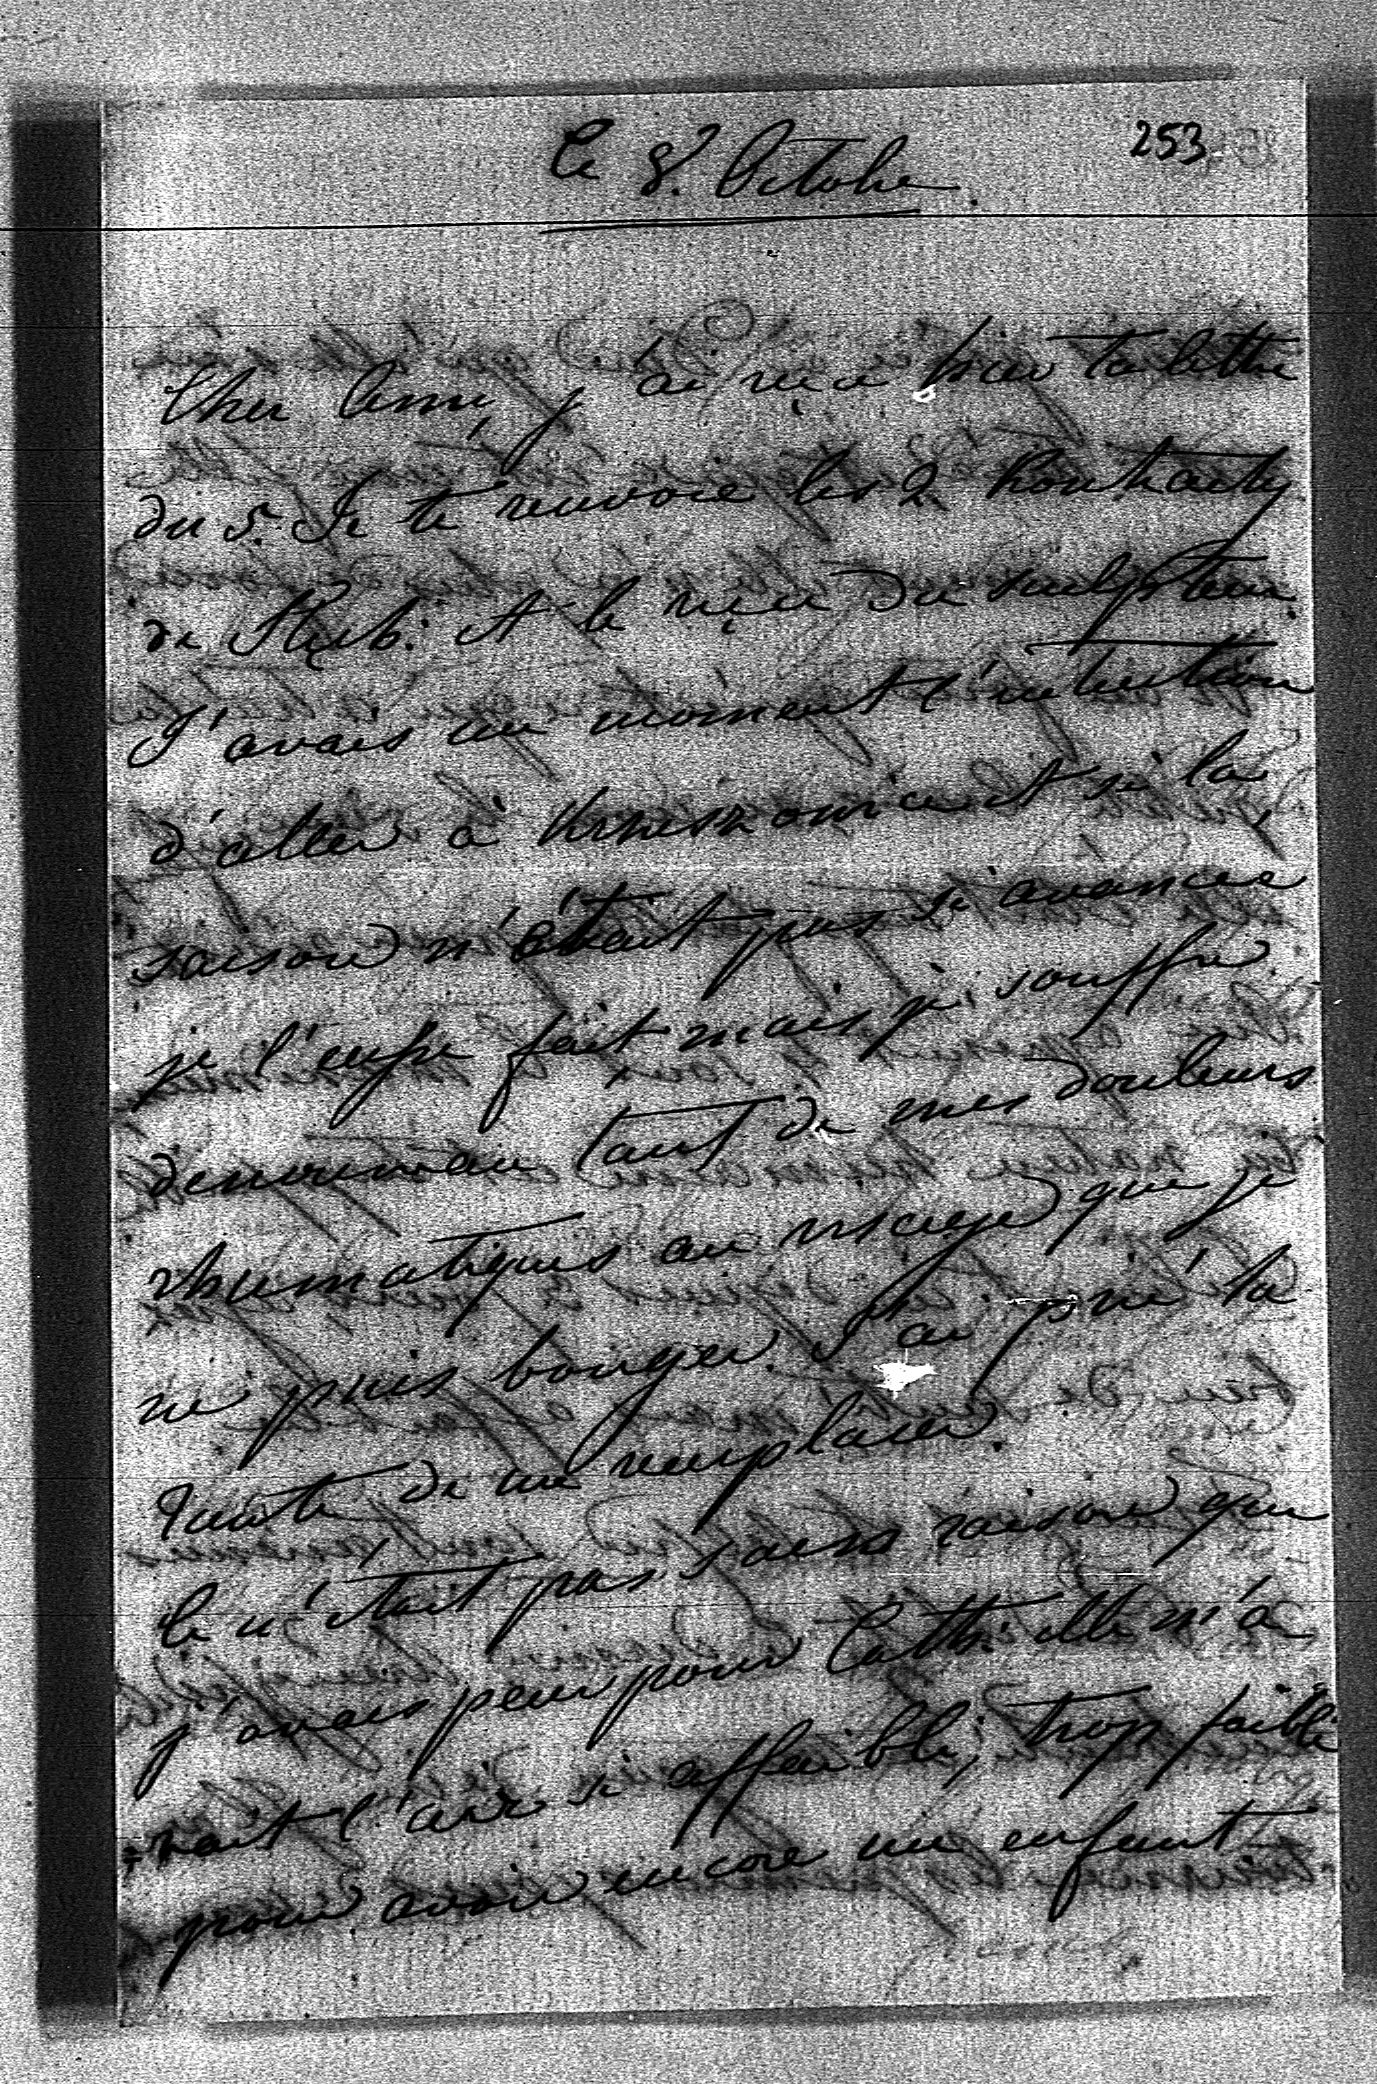 253
Ce 8. Octobre.
Cher Ami, j'ai reçu hier ta lettre
du 5. Je te renvoie les 2
de et le reçu du sculpteur.
J'avais un moment l'intention
d'aller à et si la
saison n'était pas si avancée
je l'eusse fait mais je souffre
denouveau tant de mes douleurs
rhumatiques au visage que je
ne puis bouger. J'ai prié la
Tante de me remplacer.
Ce n'était pas sans raison que
j'avais peur pour Cath: elle m'a
=vait l'air si affaibli, trop faible
pour avoir encore un enfant